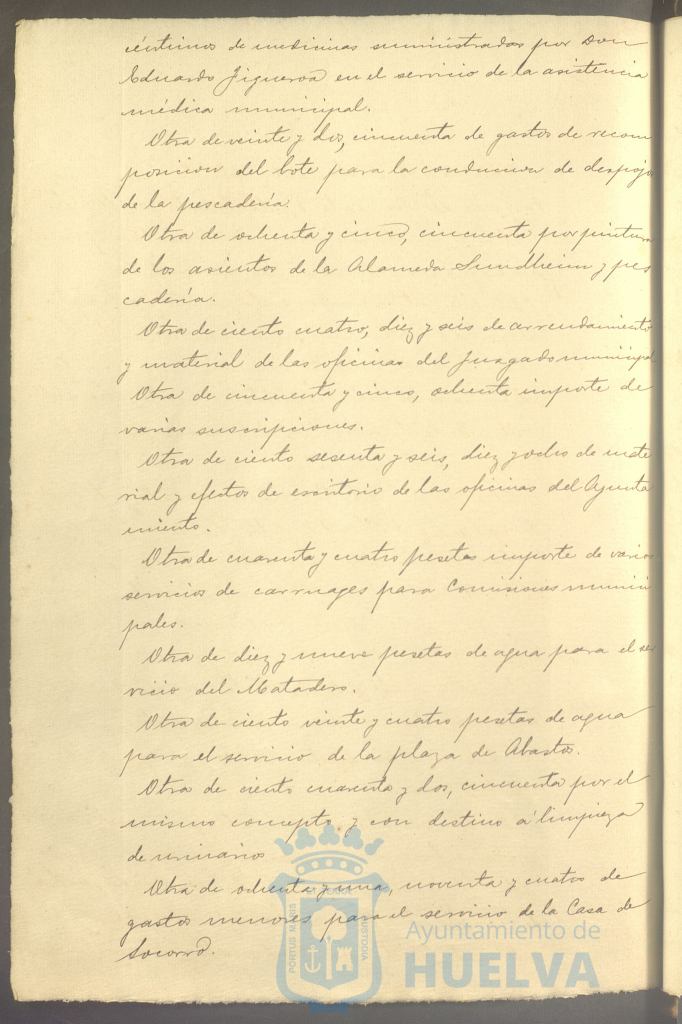 céntimos de medicinas suministradas por Don
Eduardo Figueroa en el servicio de la asistencia
médica municipal.
Otra de veinte y dos, cincuenta de gastos de recom
posicion del bote para la conduccion de despojo
de la pescadería.
Otra de ochenta y cinco, cincuenta por pintura
de los asientos de la Alameda Sundheim y pes
cadería.
Otra de ciento cuatro, diez y seis de arrendamiento
y material de las oficinas del Juzgado municipal
Otra de cincuenta y cinco, ochenta importe de
varias suscripciones.
Otra de ciento sesenta y seis, diez y ocho de mate
rial y efectos de escritorio de las oficinas del Ayunta
miento.
Otra de cuarenta y cuatro pesetas importe de varios
servicios de carruages para Comisiones munici
pales.
Otra de diez y nueve pesetas de agua para el ser
vicio del Matadero.
Otra de ciento veinte y cuatro pesetas de agua
para el servicio de la plaza de Abastos.
Otra de ciento cuarenta y dos, cincuenta por el
mismo concepto y con destino á limpieza
de urinarios
Otra de ochenta y una, noventa y cuatro de
gastos menores para el servicio de la Casa de
Socorro.
PORTUS MARIS
CUSTODIA
Ayuntamiento de
HUELVA